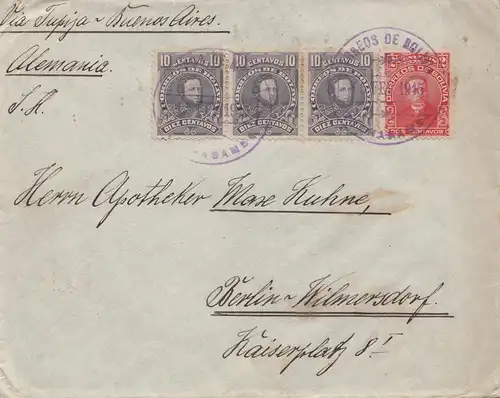 Via Tupiza - Buenos Aires.
Alemania.
S. A.
10 CENTAVOS 10
CORREOS DE BOLIVIA
DIEZ CENTAVOS
10 CENTAVOS 10
CORREOS DE BOLIVIA
DIEZ CENTAVOS
10 CENTAVOS 10
CORREOS DE BOLIVIA
DIEZ CENTAVOS
CORREOS DE BOLIVIA
DOS CENTAVOS
Herrn Apotheker Max Kuhne,
Berlin-Wilmersdorf.
Kaiserplatz 8 I